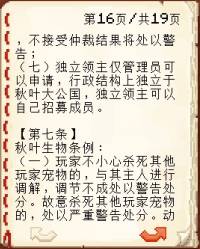 第16页/共19页
，不接受仲裁结果将处以警
告；
（七）独立领主仅管理员可
以申请，行政结构上独立于
秋叶大公国，独立领主可以
自己招募成员。
【第七条】
秋叶生物条例：
（一）玩家不小心杀死其他
玩家宠物的，与其主人进行
调解，调节不成处以警告处
分。故意杀死其他玩家宠物
的，处以严重警告处分。动